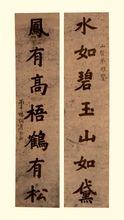 水如碧玉山如黛
鳳有高梧鶴有松